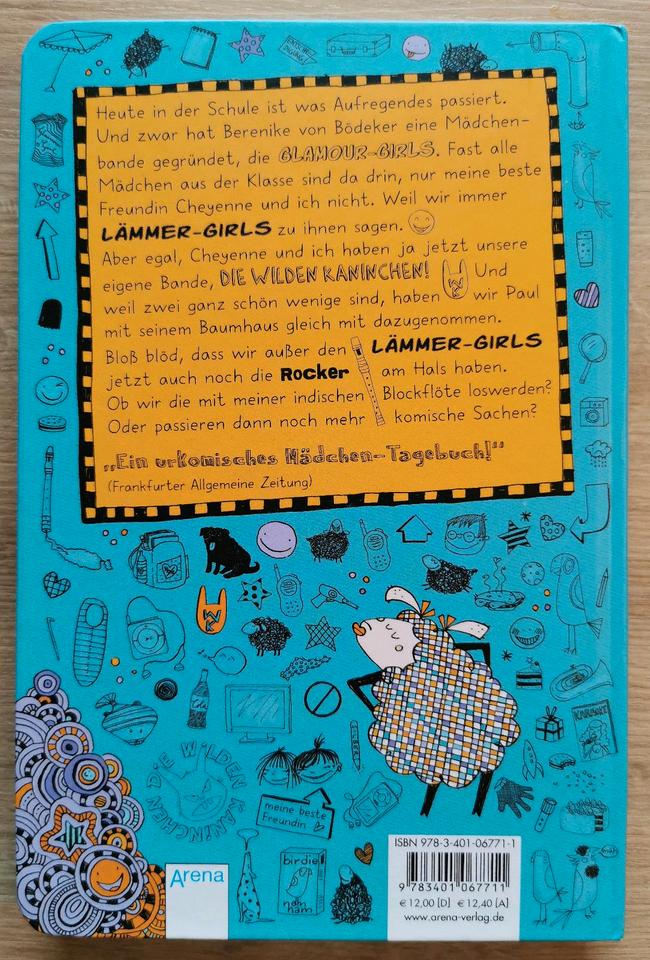 Heute in der Schule ist was Aufregendes passiert.
Und zwar hat Berenike von Bödeker eine Mädchen-
bande gegründet, die GLAMOUR-GIRLS. Fast alle
Mädchen aus der Klasse sind da drin, nur meine beste
Freundin Cheyenne und ich nicht. Weil wir immer
LÄMMER-GIRLS zu ihnen sagen.
Aber egal, Cheyenne und ich haben ja jetzt unsere
eigene Bande, DIE WILDEN KANINCHEN! WK Und
weil zwei ganz schön wenige sind, haben wir Paul
mit seinem Baumhaus gleich mit dazugenommen.
Bloß blöd, dass wir außer den LÄMMER-GIRLS
jetzt auch noch die Rocker am Hals haben.
Ob wir die mit meiner indischen Blockflöte loswerden?
Oder passieren dann noch mehr komische Sachen?
„Ein urkomisches Mädchen-Tagebuch!“
(Frankfurter Allgemeine Zeitung)
WK
KARAOKE
DIE WILDEN KANINCHEN
meine beste
Freundin
Arena
birdie
nam
nam
ISBN 978-3-401-06771-1
9 783401 067711
€ 12,00 [D] € 12,40 [A]
www.arena-verlag.de